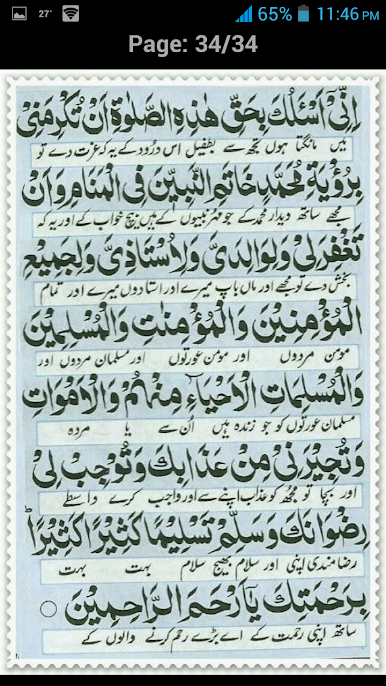 27°
65% 11:46 PM
Page: 34/34
اِنِّیْۤ اَسْئَلُكَ بِحَقِّ هٰذِهِ الصَّلٰوةِ اَنْ تُكْرِمَنِیْ
میں مانگتا ہوں تجھ سے بطفیل اس درود کے یہ کہ عزت دے تو
بِرُؤْيَةِ مُحَمَّدٍ خَاتِمِ النَّبِيّٖنَ فِی الْمَنَامِ وَاَنْ
مجھے ساتھ دیدار محمد کے جو مہر نبیوں کے ہیں بیچ خواب کے اور یہ کہ
تَغْفِرَلِیْ وَلِوَالِدَیَّ وَلِاُسْتَاذِیْ وَلِجَمِيْعِ
بخش دے تو مجھے اور ماں باپ میرے اور استادوں میرے اور تمام
الْمُؤْمِنِيْنَ وَالْمُؤْمِنٰتِ وَالْمُسْلِمِيْنَ
مومن مردوں اور مومن عورتوں اور مسلمان مردوں اور
وَالْمُسْلِمَاتِ الْاَحْيَاءِ مِنْهُمْ وَالْاَمْوَاتِ
مسلمان عورتوں کو جو زندہ ہیں ان سے یا مردہ
وَتُجِيْرَنِیْ مِنْ عَذَابِكَ وَتُوْجِبَ لِیْ
اور بچا تو مجھ کو عذاب اپنے سے اور واجب کرے واسطے
رِضْوَانَكَ وَسَلِّمْ تَسْلِيْمًا كَثِيْرًا كَثِيْرًا ط
رضامندی اپنی اور سلام بھیج سلام بہت بہت
بِرَحْمَتِكَ يَاۤ اَرْحَمَ الرَّاحِمِيْنَ ○
ساتھ اپنی رحمت کے اے بڑے رحم کرنے والوں کے